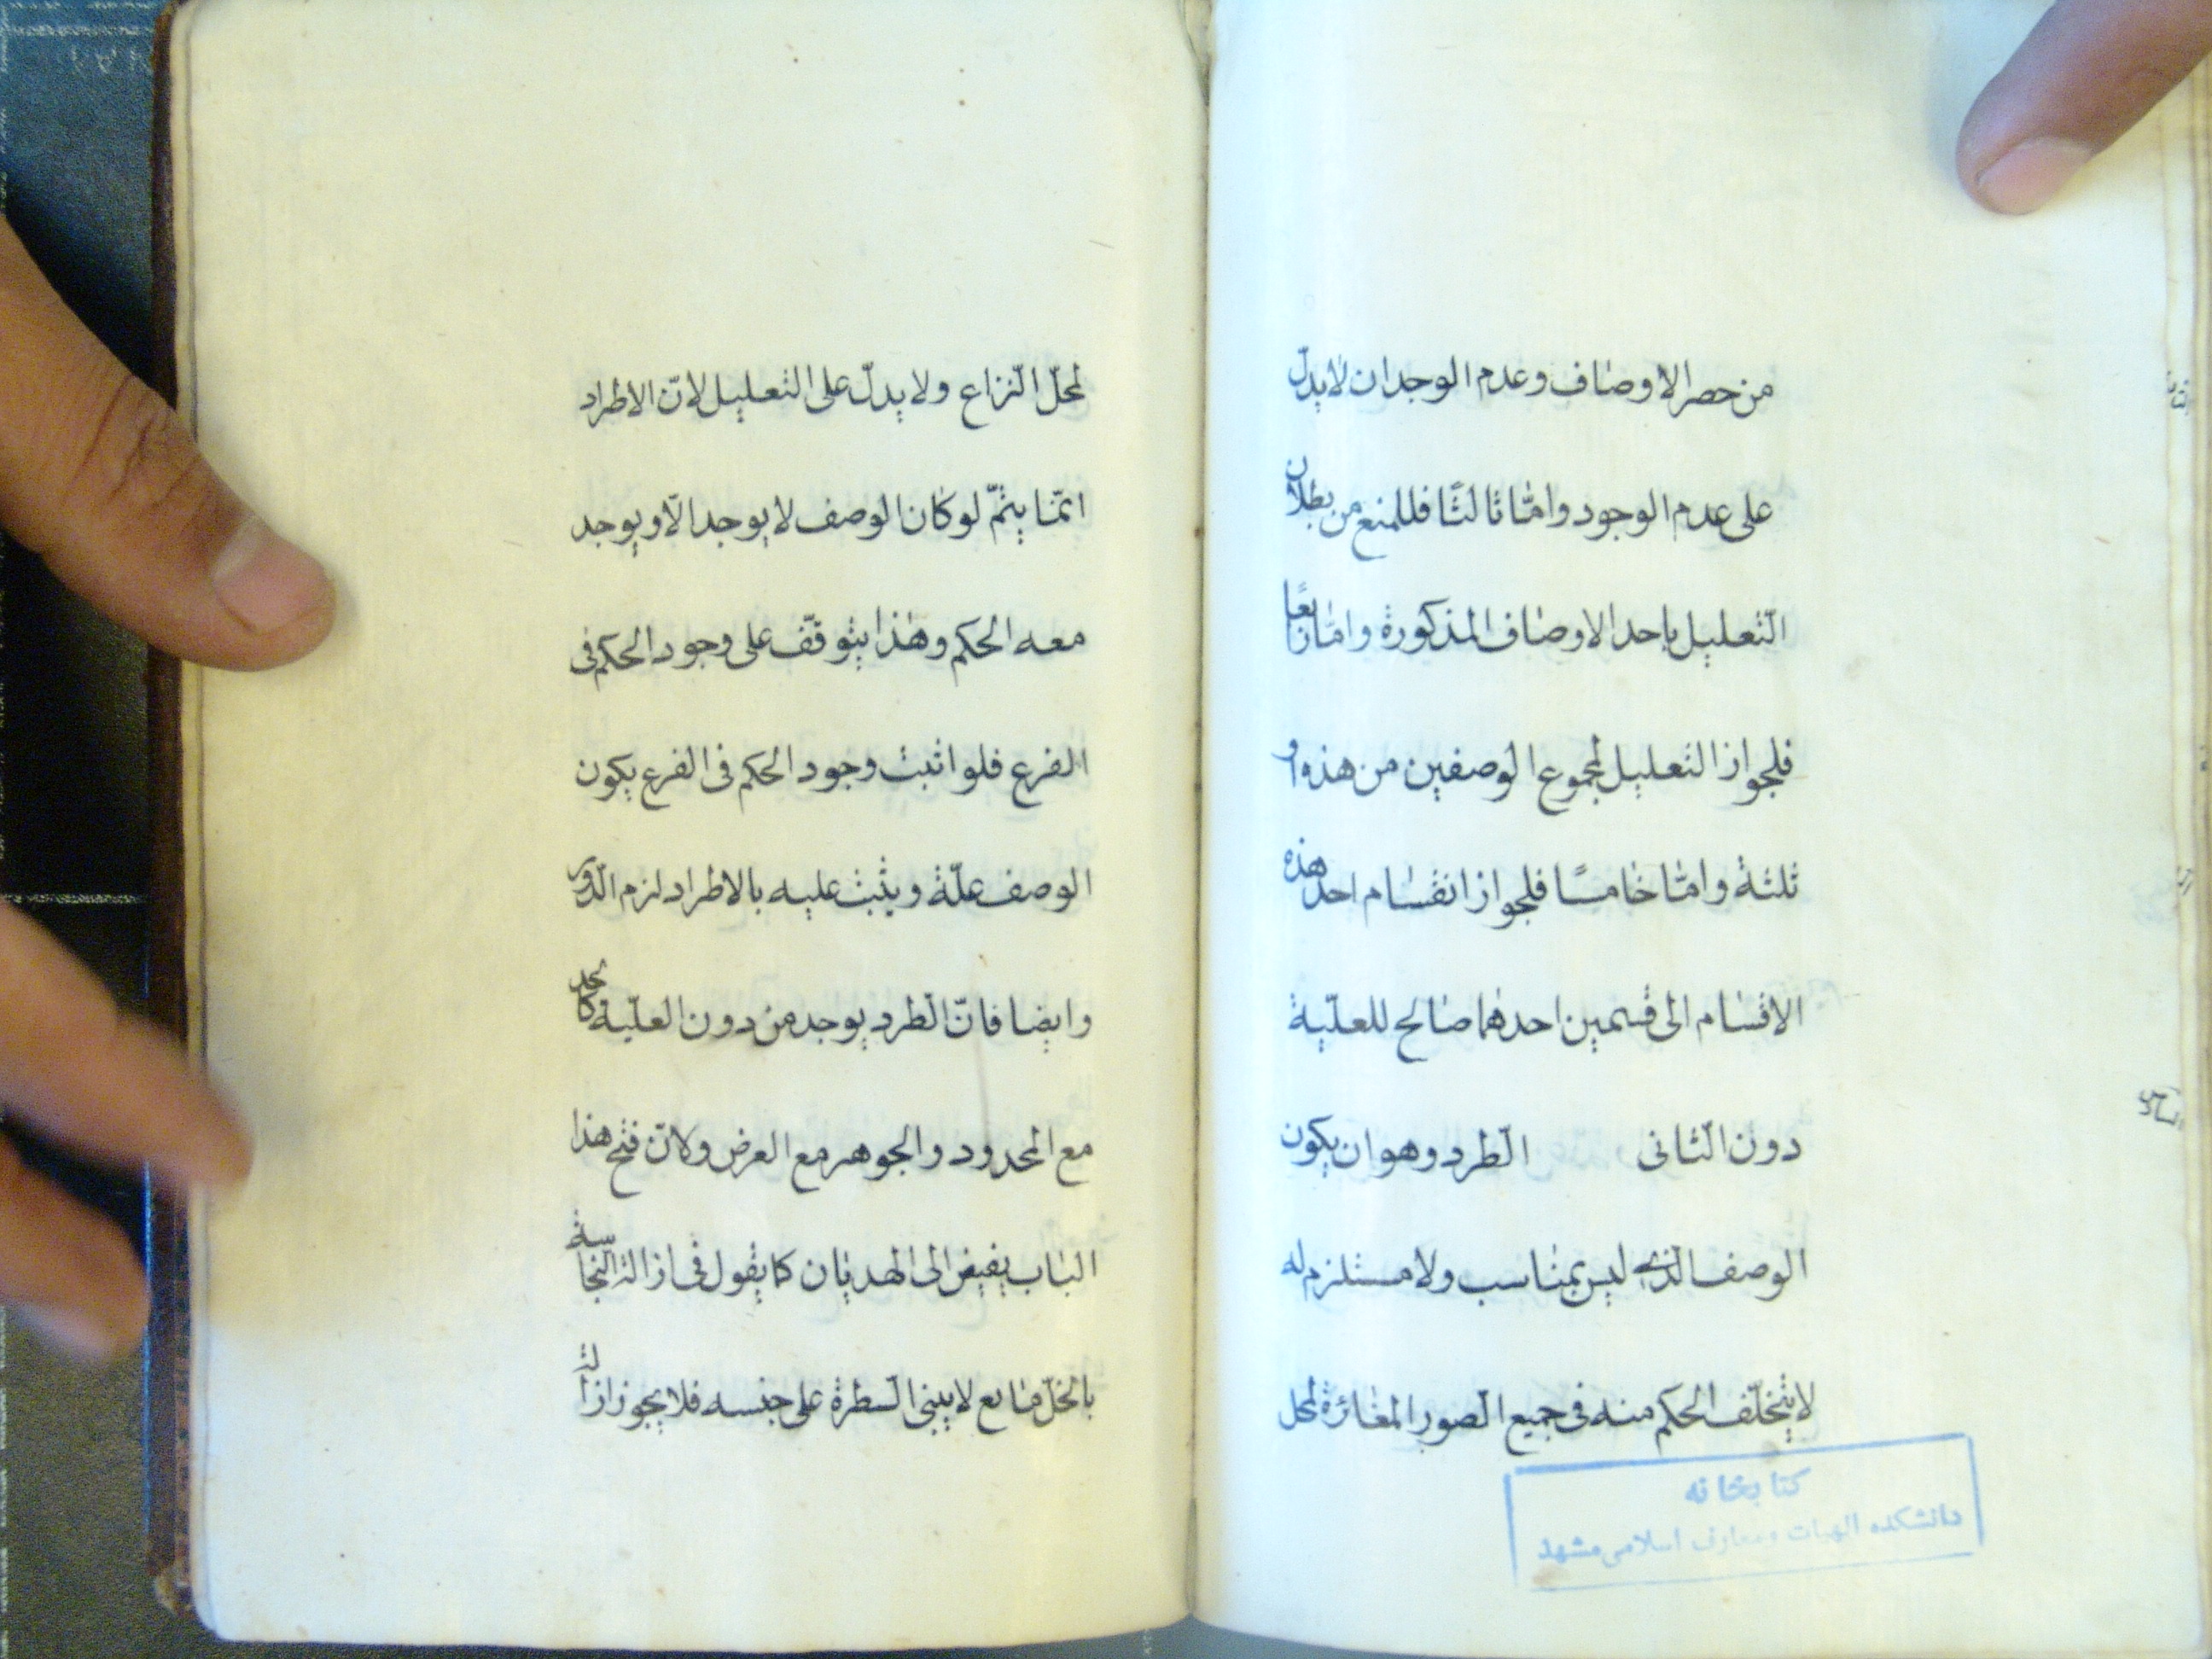 من حصر الاوصاف وعدم الوجدان لا يدلّ
على عدم الوجود وامّا ثالثًا فللمنع من بطلان
التّعليل باحد الاوصاف المذكورة وامّا رابعًا
فلجواز التعليل لمجموع الوصفين من هذه او
ثلثة وامّا خامسًا فلجواز انقسام احد هذه
الاقسام الى قسمين احدهما صالح للعليّة
دون الثّانى الطّرد وهو ان يكون
الوصف الذى ليس بمناسب ولا مستلزم له
لا يتخلّف الحكم منه فى جميع الصّور المغائرة لمحل
كتابخانه
دانشكده الهيات ومعارف اسلامى مشهد
لمحلّ النّزاع ولا يدلّ على التعليل لانّ الاطراد
انّما يتمّ لو كان الوصف لا يوجد الّا ويوجد
معه الحكم وهذا يتوقّف على وجود الحكم فى
الفرع فلو اثبت وجود الحكم فى الفرع يكون
الوصف علّة ويثبت عليه بالاطراد لزم الدّور
وايضا فانّ الطّرد يوجد من دون العليّة كالحد
مع المحدود والجوهر مع العرض ولانّ فتح هذا
الباب يفيض الى الهديان كما يقول فى ازالة النجاسة
بالخلّ مايع لا يبنى السطرة على جنسه فلا يجوز ازالة